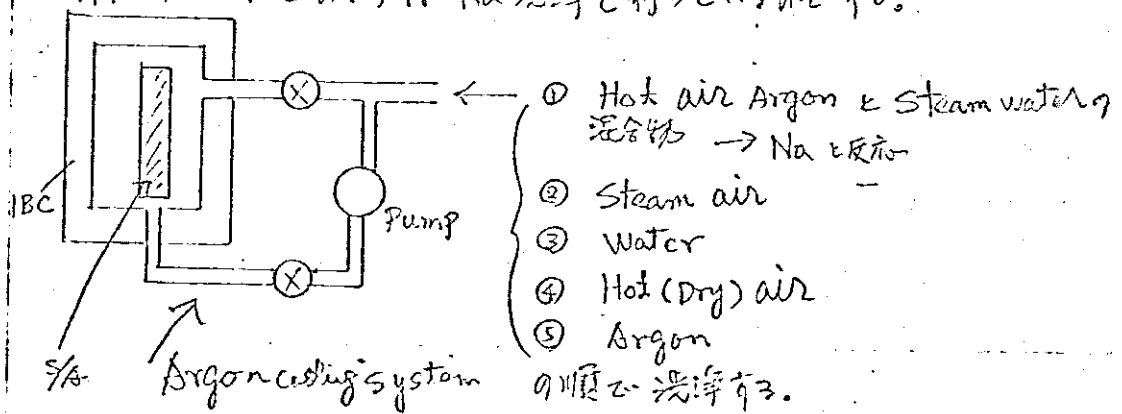 Na洗浄を行う
① Hot air Argon と Steam water の
混合物 → Na と反応
② Steam air
③ Water
④ Hot (Dry) air
⑤ Argon
の順で洗浄する。
IBC
Pump
S/A
Argon system